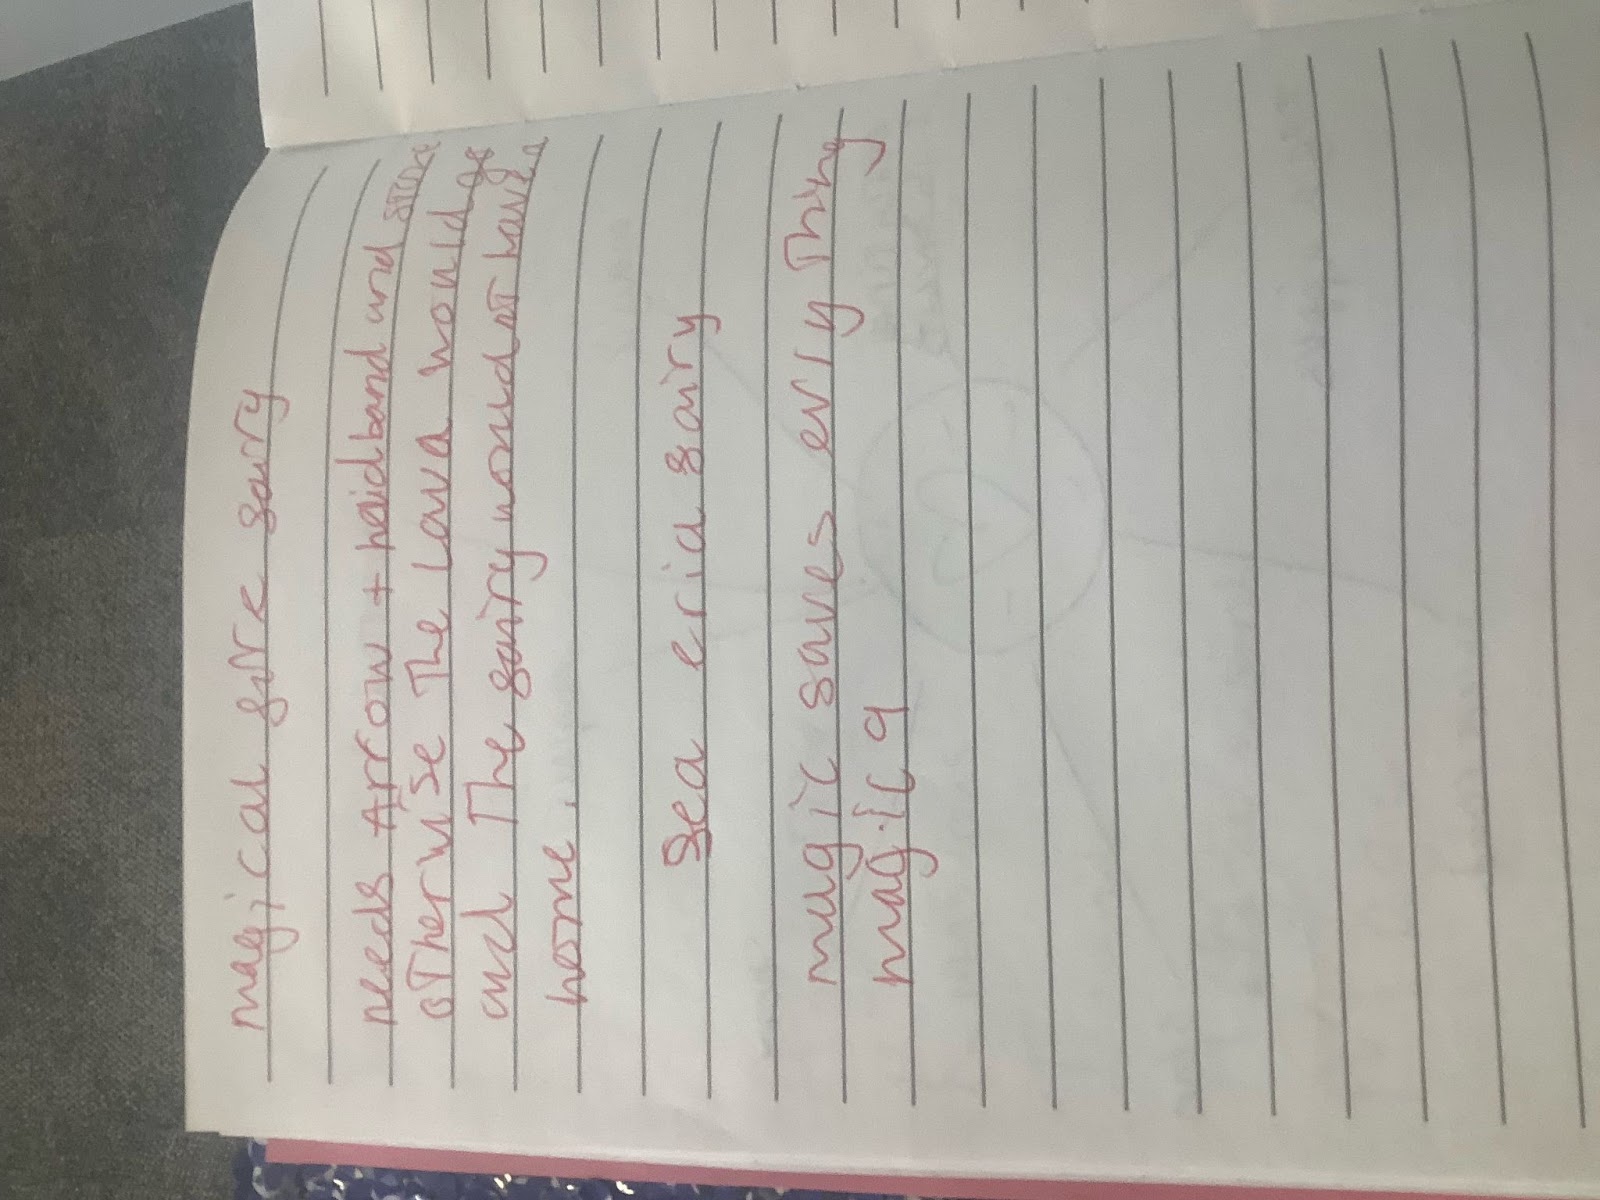 magical fire fairy
needs Arrow + haidband and stone
oTherwise The Lava would go
and The fairy would oT have a
home.
Sea eria fairy
magic saves evry Thing
magic 9